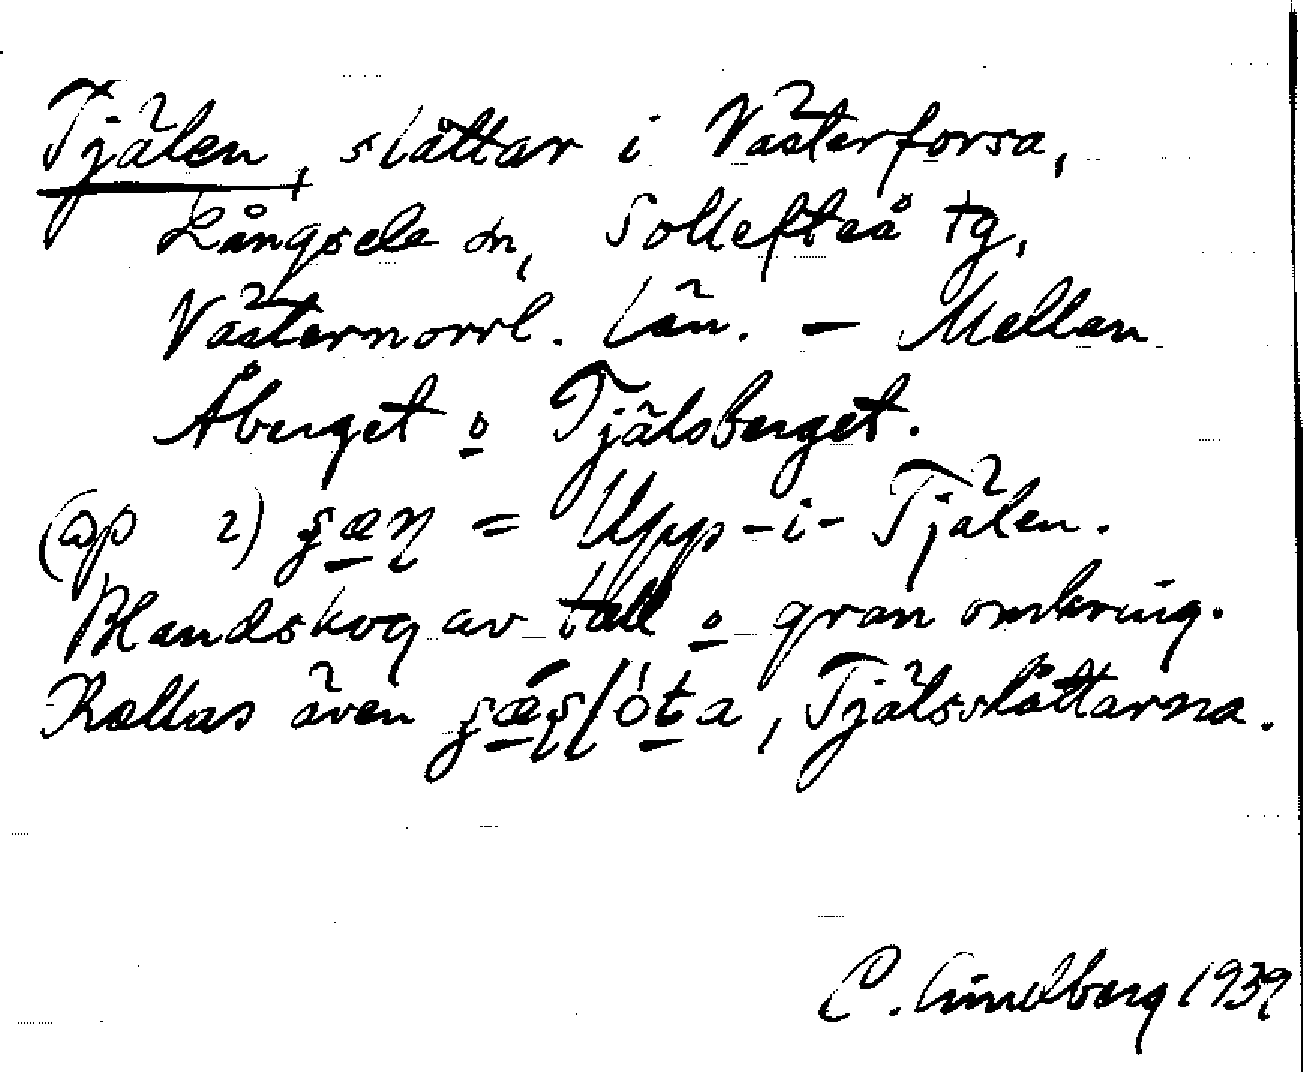 Tjälen, slåttar i Västerforsa,
Långsele sn, Sollefteå tg,
Västernorrl. län. – Mellan
Åberget o Tjälsberget.
(ap 2) = Upp-i-Tjälen.
Blandskog av tall o gran omkring.
Kallas även, Tjälsslåttarna.
C. Lindberg 1939